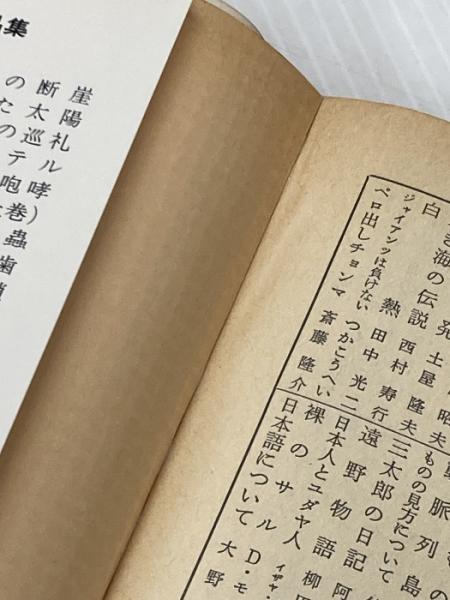 品集
の断崖
た太陽
の巡礼
テル
咆哮
巻)
蟲
歯
昭夫
発 土屋隆夫
き海の伝説 西村寿行
白熱 田中光二
ジャイアンツは負けない つかこうへい
ペロ出しチョンマ 斎藤隆介
脈列島
ものの見方について
三太郎の日記 阿
遠野物語 柳田
日本人とユダヤ人 イザヤ・
裸のサル D・モ
日本語について 大野